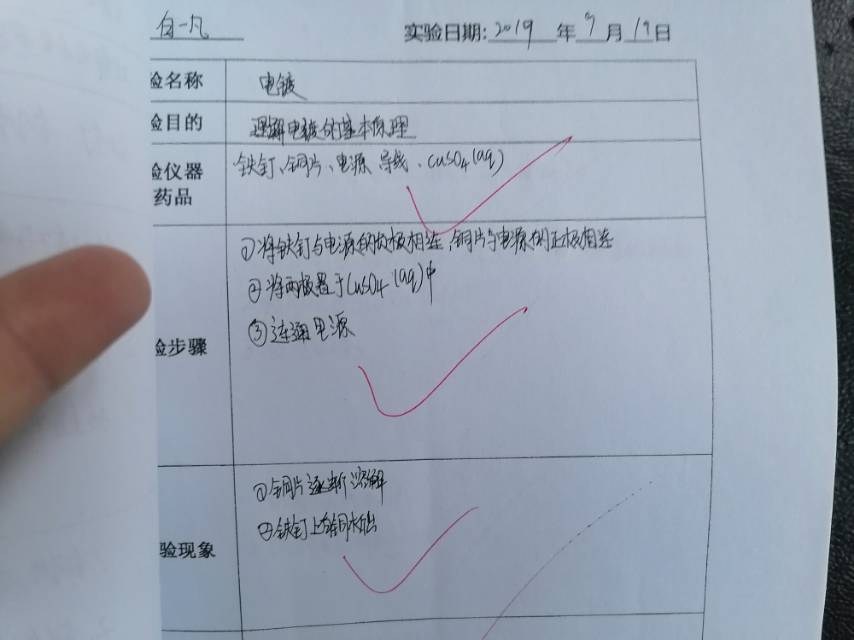 白一凡 实验日期: 2019 年 9 月 19 日
验名称 电镀
验目的 理解电镀的基本原理
验仪器 铁钉、铜片、电源、导线、CuSO4(aq)
药品
①将铁钉与电源的负极相连,铜片与电源的正极相连
②将两极置于CuSO4(aq)中
③连通电源
验步骤
①铜片逐渐溶解
②铁钉上有铜析出
验现象